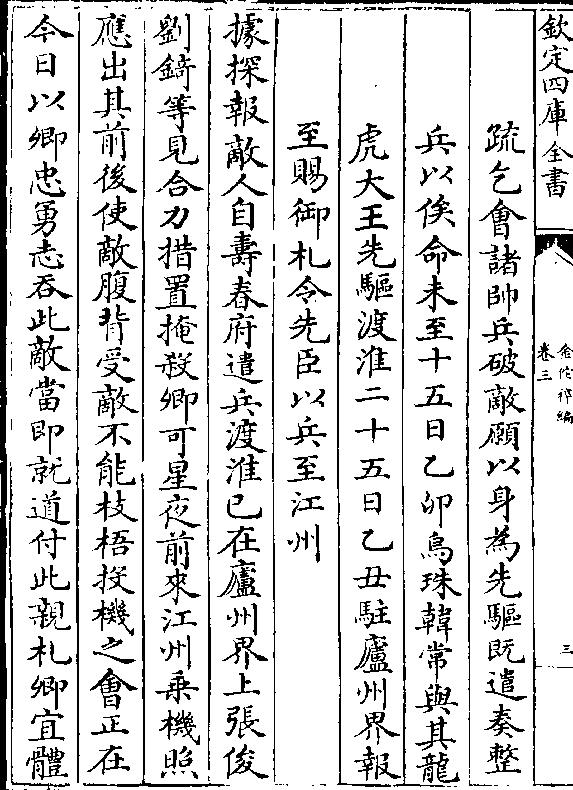 欽定四庫全書
金佗稡編
卷三
三
疏乞會諸帥兵破敵願以身為先驅既遣奏整
兵以俟命未至十五日乙卯烏珠韓常與其龍
虎大王先驅渡淮二十五日乙丑駐廬州界報
至賜御札令先臣以兵至江州
據探報敵人自壽春府遣兵渡淮已在廬州界上張俊
劉錡等見合力措置掩殺卿可星夜前來江州乗機照
應出其前後使敵腹背受敵不能枝梧投機之㑹正在
今日以卿忠勇志吞此敵當即就道付此親札卿宜體